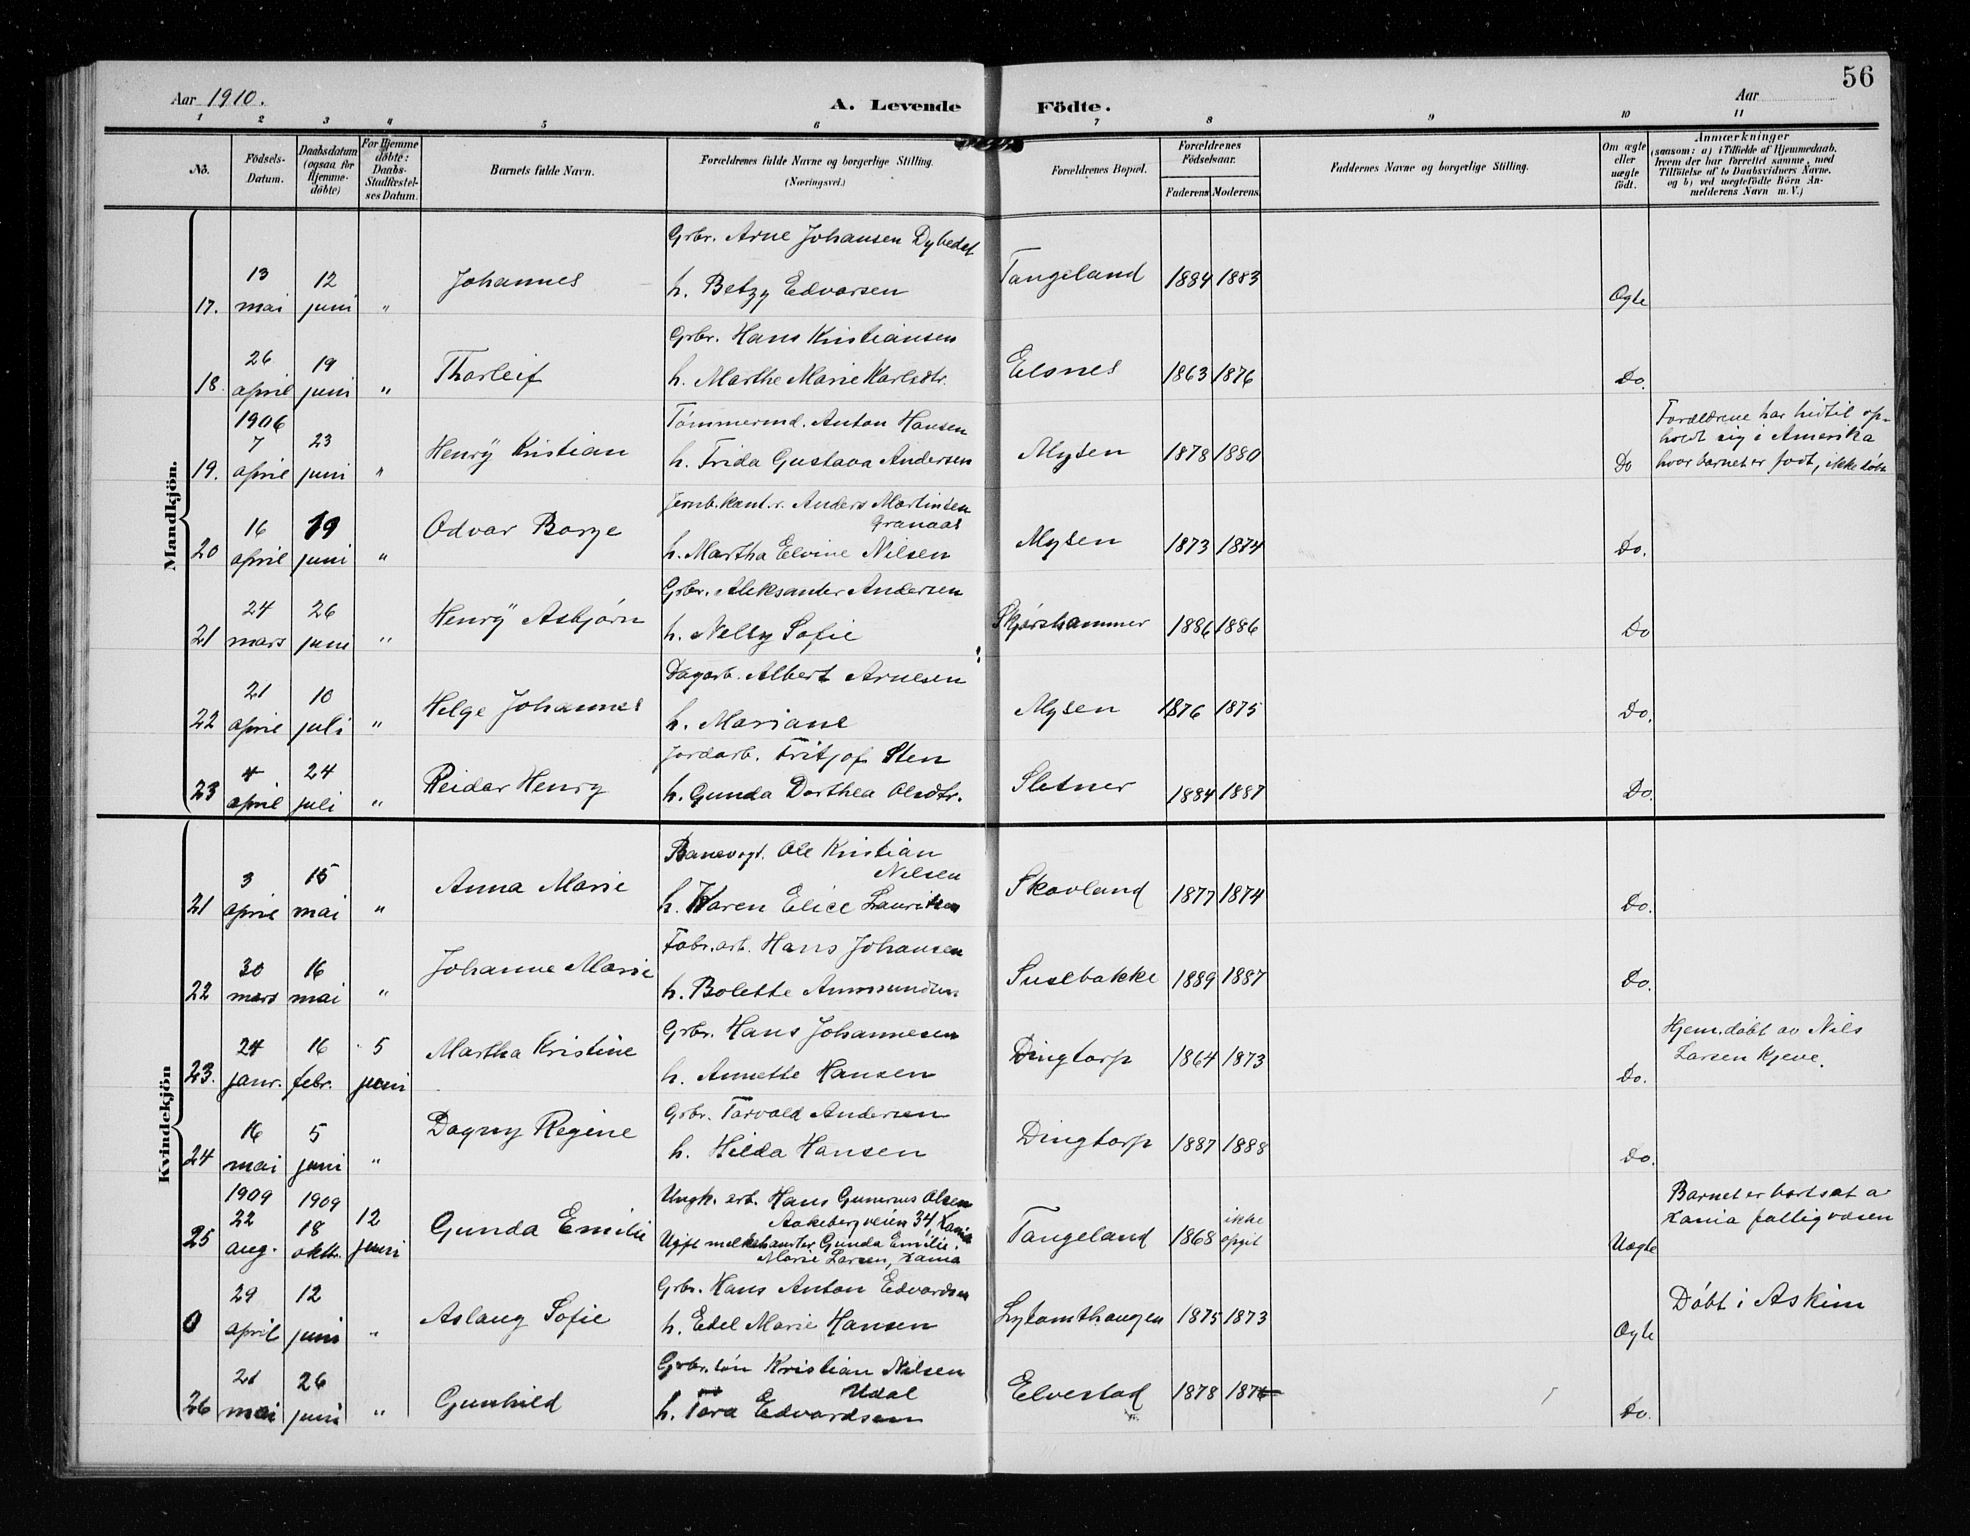 56
Aar 1910.
A. Levende Födte.
Aar
1 2 3 4 5 6 7 8 9 10 11
No.
Födsels-Datum.
Daabsdatum (ogsaa for Hjemme-döbte)
For Hjemme döbte: Daabs-Stadfæstel-ses Datum.
Barnets fulde Navn.
Forældrenes fulde Navne og borgerlige Stilling. (Næringsvei.)
Forældrenes Bopæl.
Forældrenes Födselsaar.
Faderens Moderens
Faddernes Navne og borgerlige Stilling.
Om ægte eller uægte födt.
Anmærkninger (saasom: a) i Tilfælde af Hjemmedaab, hvem der har forrettet samme, med Tilföielse af to Daabsvidners Navne, og b) ved uægtefödte Börn Anmelderens Navn m. V.)
Mandkjön.
Grbr. Arne Johansen Dybedal
17. 13 mai 12 juni " Johannes h. Betzy Edvarsen Tangeland 1884 1883 Ægte
Grbr. Hans Kristiansen
18. 26 april 19 juni " Thorleif h. Marthe Marie Karlsdtr. Elsnes 1863 1876 Do.
Tømmermd. Anton Hansen
19. 1906 7 april 23 juni " Henrÿ Kristian h. Frida Gustava Andersen Mysen 1878 1880 Do
Forældrene har hidtil op-
holdt sig i Amerika
hvor barnet er født, ikke døbt
Jernb.kont.r. Anders Martinsen
Granaas
20 16 april 19 juni " Odvar Borge h. Martha Elvine Nilsen Mysen 1873 1874 Do.
Grbr. Aleksander Andersen
21 24 mars 26 juni " Henrÿ Asbjørn h. Nelly Sofie Skjørshammer 1886 1886 Do
Dagarb. Albert Arnesen
22 21 april 10 juli " Helge Johannes h. Mariane Mysen 1876 1875 Do.
Jordarb. Fritjof Sten
23 4 april 24 juli " Reidar Henry h. Gunda Dorthea Olsdtr. Sletner 1884 1887 Do.
Kvindekjön
Banevogt. Ole Kristian
Nilsen
21 3 april 15 mai " Anna Marie h. Karen Elice Lauritsen Skovland 1877 1874 Do.
Fabr.arb. Hans Johansen
22 30 mars 16 mai " Johanne Marie h. Bolette Ammundsen Suselbakke 1889 1887 Do.
Grbr. Hans Johannesen
23. 24 janr. 16 febr. 5 juni Martha Kristine h. Annette Hansen Dingtorp 1864 1873 Do.
Hjem.døbt av Nils
Larsen Kjeve.
Grbr. Torvald Andersen
24 16 mai 5 juni " Dagny Regine h. Hilda Hansen Dingtorp 1887 1888 Do.
Ungk. arb. Hans Gunerius Olsen
Aakebergveien 34, Xania
25 1909 22 aug. 1909 18 oktb. 12 juni Gunda Emilie Ugift melkehandler Gunda Emilie
Marie Larsen, Xania
Tangeland 1868 ikke opgit Uægte
Barnet er bortsat a
Xania fattigvæsen
Grbr. Hans Anton Edvardsen
0 29 april 12 juni " Aslaug Sofie h. Edel Marie Hansen Lytomthaugen 1875 1873 Ægte
Døbt i Askim
Grbr.søn Kristian Nilsen
Udal
26 21 mai 26 juni " Gunhild h. Tora Edvardsen Elvestad 1878 1876 Do.